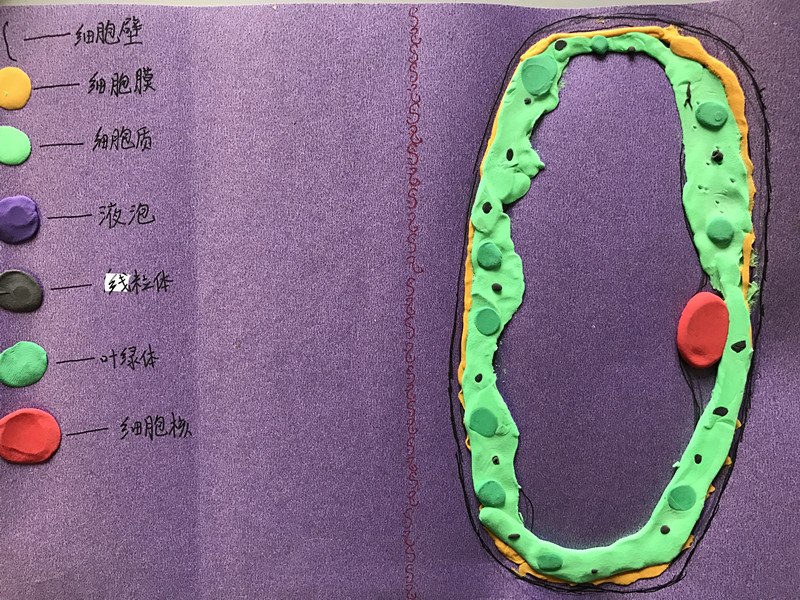 细胞壁
细胞膜
细胞质
液泡
线粒体
叶绿体
细胞核